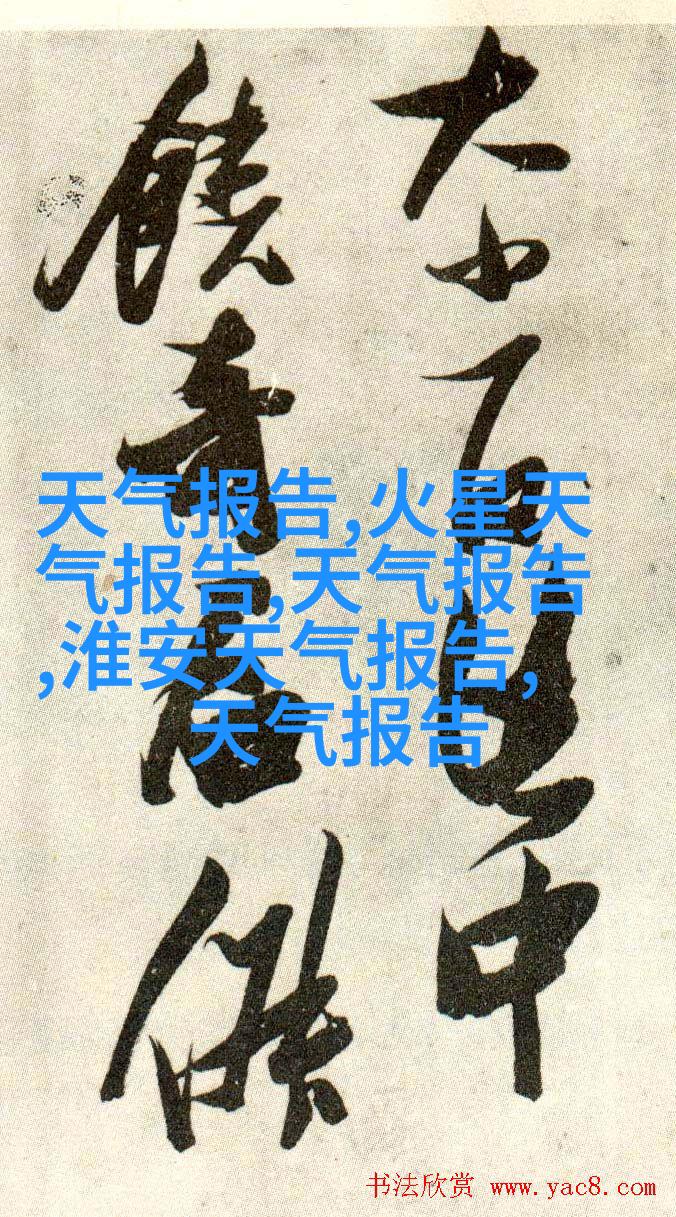 大小中
饒奇
天气报告,火星天
气报告,天气报告
,淮安天气报告,
天气报告
书法欣赏 www.yac8.com